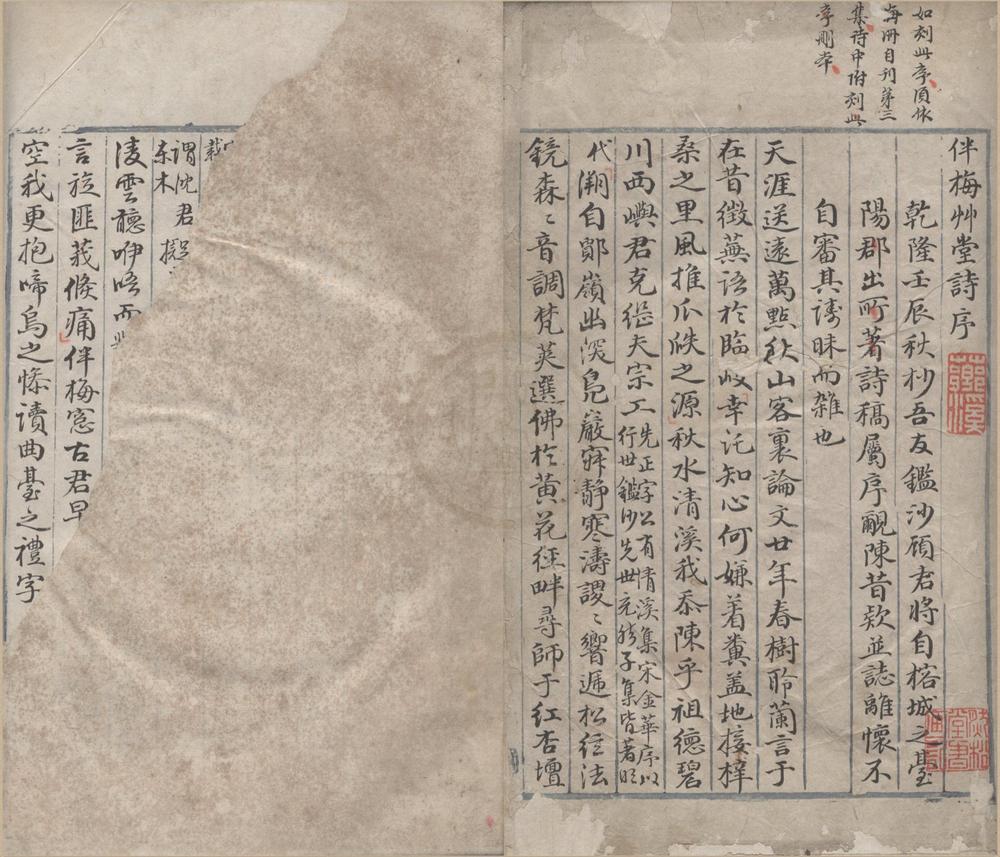 如刻此序須依
每冊自刊第三
集詩中附刻此
序剛本
伴梅艸堂詩序
乾隆壬辰秋杪吾友鑑沙顧君將自榕城之臺
陽郡出所著詩稿屬序覼陳昔欵並誌離懷不
自審其譸昧而雜也
天涯送遠萬點秋山客裏論文廿年春樹聆蘭言于
在昔徵蕪語於臨岐幸託知心何嫌着糞盖地接梓
桑之里風推瓜瓞之源秋水清溪我忝陳乎祖德碧
川西嶼君克繼夫宗工先正字公有清溪集宋金華序以
行世鑑沙先世充
子集皆著明
代溯自鄮嶺幽深鳧巖寂静寒濤謖〻響遞松徑法
鏡森〻音調梵筴選佛於黄花徑畔尋師于紅杏壇
載
謂沈君
東木
淩雲聽咿唔而
言旋匪莪倏痛伴梅窓古君早
空我更抱啼烏之慘讀曲臺之禮字